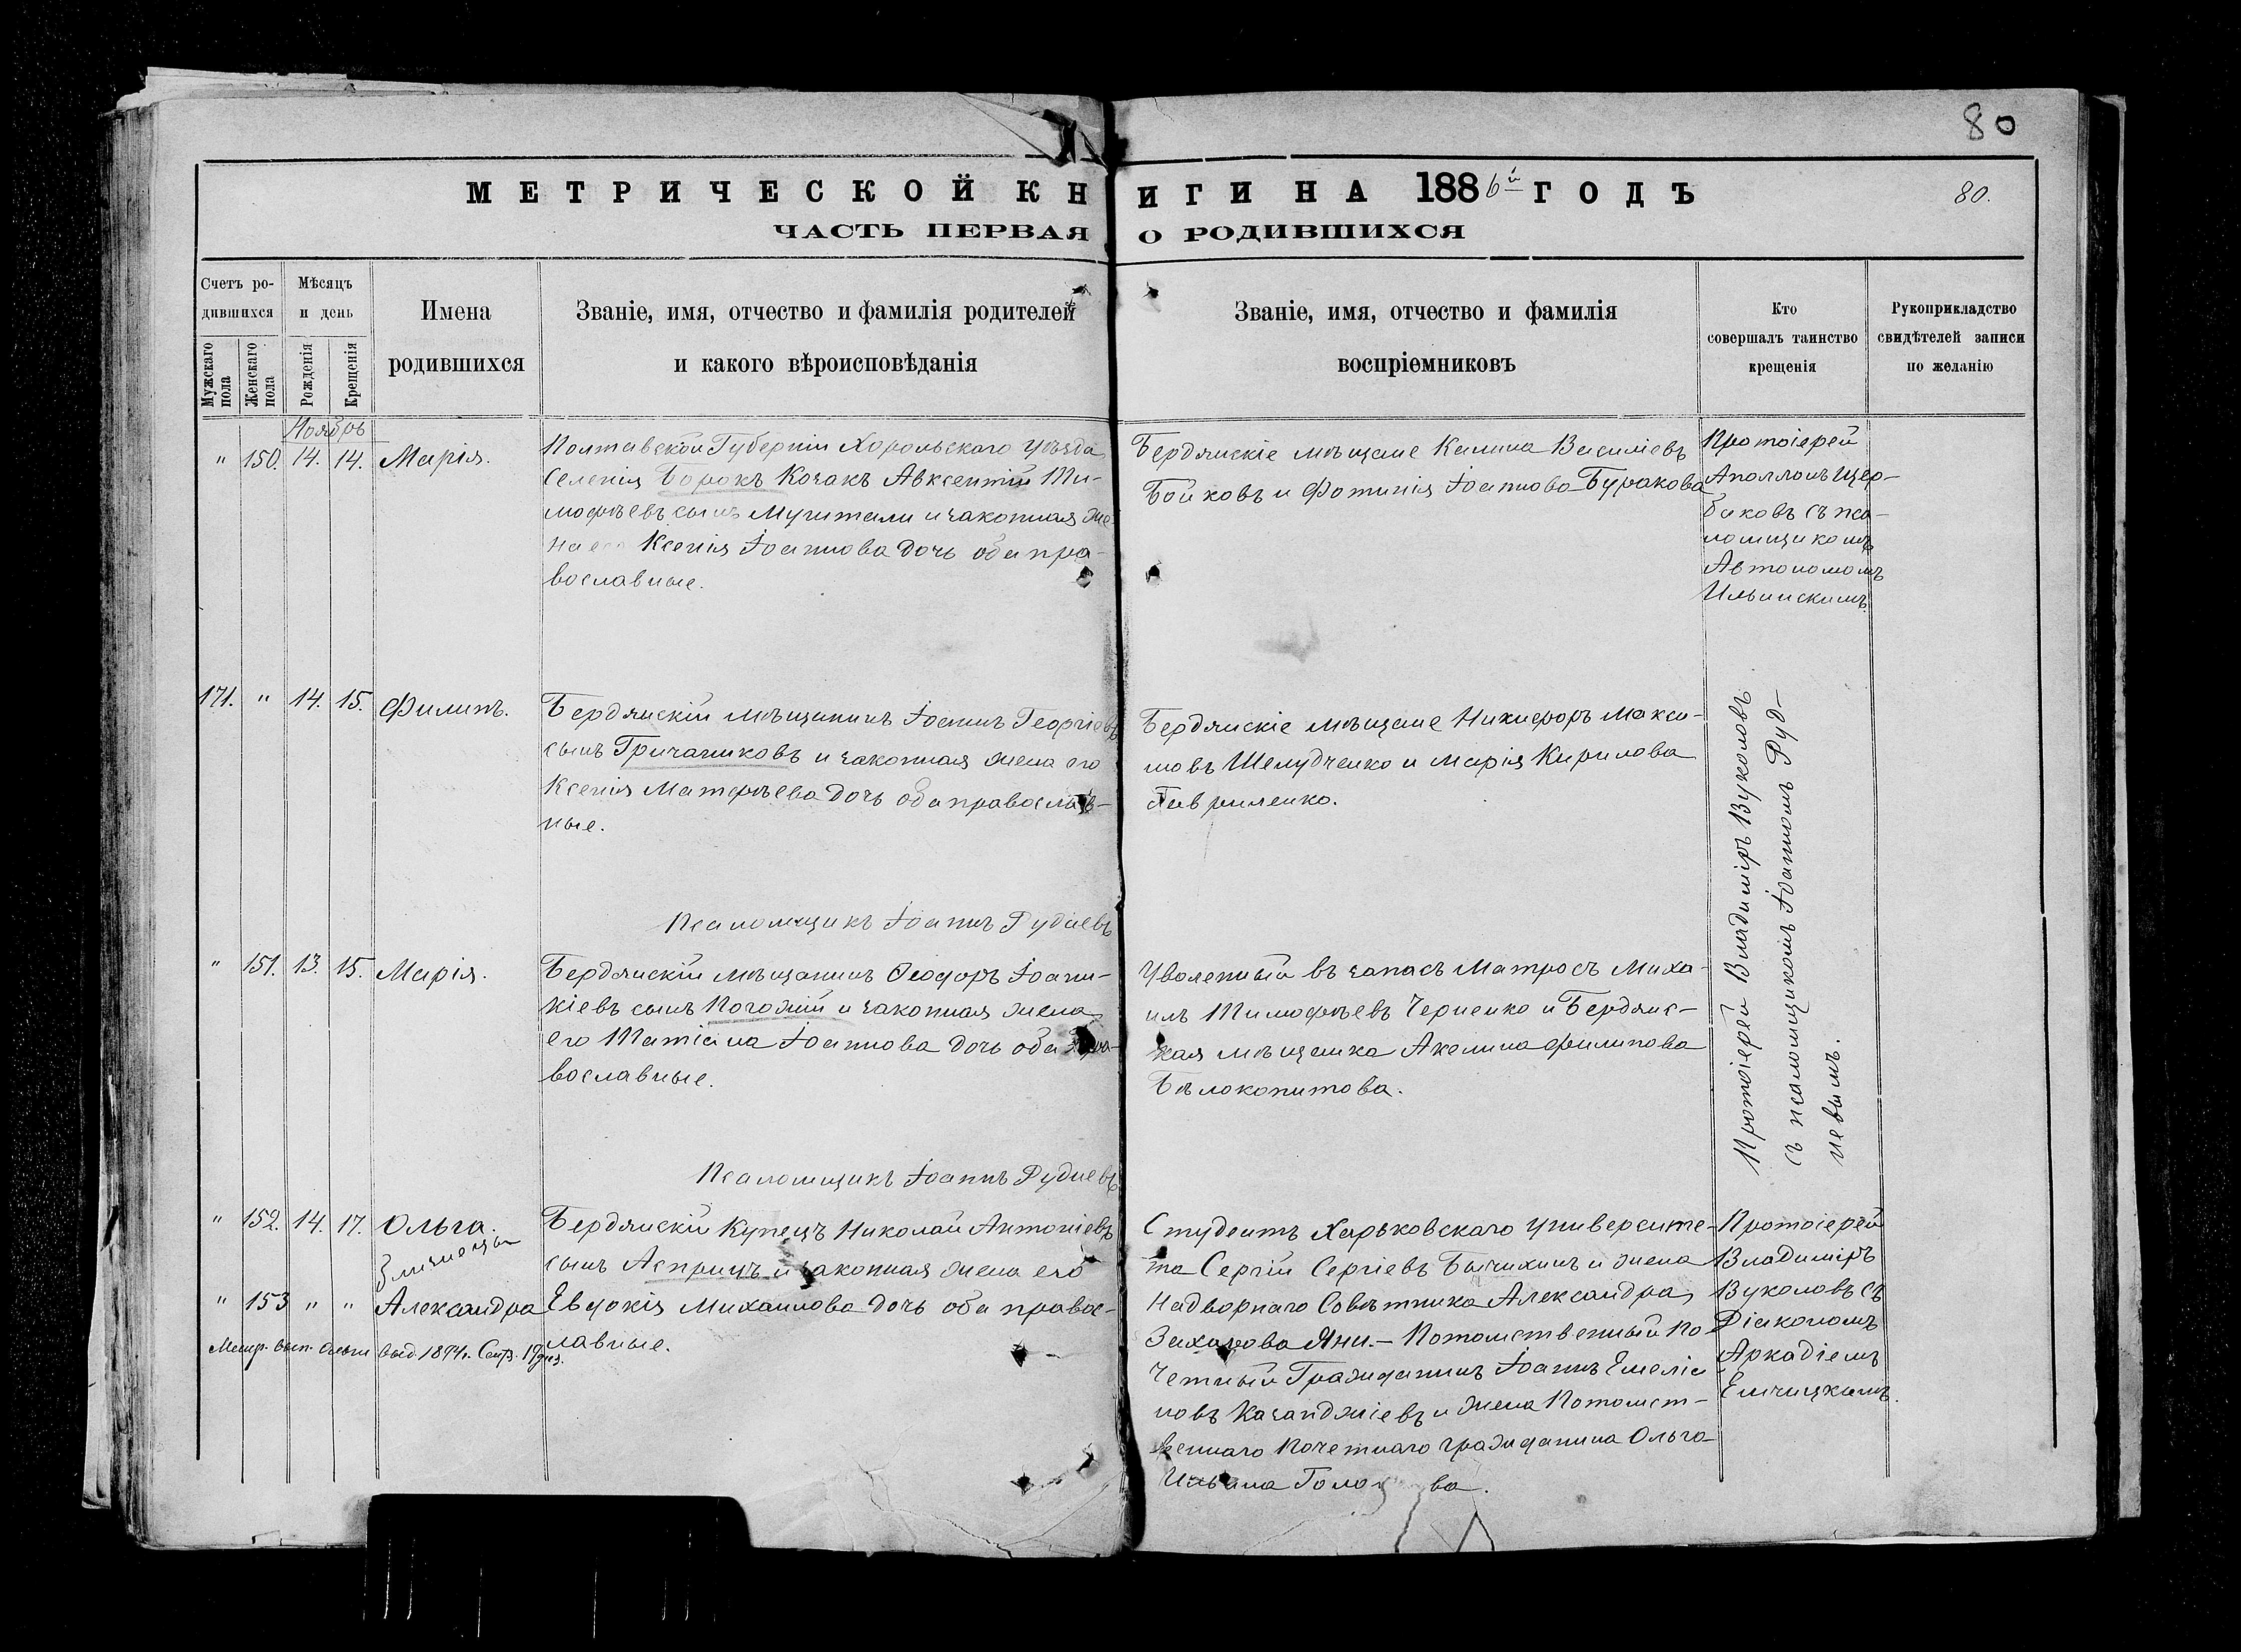 80
МЕТРИЧЕСКОЙ КНИГИ НА 1886й ГОДЪ
80.
ЧАСТЬ ПЕРВАЯ О РОДИВШИХСЯ
Счетъ ро-
дившихся
Мужскаго пола
Женскаго пола
Мѣсяцъ
и день
Рожденія
Крещенія
Имена
родившихся
Званіе, имя, отчество и фамилія родителей
и какого вѣроисповѣданія
Званіе, имя, отчество и фамилія
воспріемниковъ
Кто
совершалъ таинство
крещенія
Рукоприкладство
свидѣтелей записи
по желанію
Ноябрь
" 150. 14. 14. Марія.
Полтавской Губерніи Хорольскаго уѣзда
селенія Борокъ Козакъ Авксентій Ти-
мофѣевъ сынъ и законная же-
на его Ксенія Іоаннова дочь оба пра-
вославные.
Бердянскіе мѣщане Калина Василіевъ
Бойковъ и Фотинія Іоаннова Буракова
Протоіерей
Аполлонъ Щер-
баковъ съ пса-
ломщикомъ
Автономомъ
Ильинскимъ.
171. " 14. 15. Филипъ.
Бердянскій мѣщанинъ Іоаннъ Георгіевъ
сынъ Гричаниковъ и законная жена его
Ксенія Матфѣева дочь оба православ-
ные.
Псаломщикъ Іоаннъ Рудневъ
Бердянскіе мѣщане Никифоръ Макси-
мовъ Шелудченко и Марія Кирилова
Гавриленко.
Протоіерей Владиміръ Вуколовъ
съ псаломщикомъ Іоанномъ Руд-
невымъ.
" 151. 13. 15. Марія.
Бердянскій мѣщанинъ Ѳеодоръ Іоанн-
кіевъ сынъ Погожій и законная жена
его Татіана Іоаннова дочь оба пра-
вославные.
Псаломщикъ Іоаннъ Рудневъ
Уволенный въ запасъ Матросъ Миха-
илъ Тимофѣевъ Черненко и Бердянс-
кая мѣщанка Акелина Филипова
Бѣлокопитова.
" 152. 14. 17. Ольга.
Близнецы
" 153 " " Александра
Метр. вып. Ольги выд. 1894г. Сент. 17
Бердянскій Купецъ Николай Антоніевъ
сынъ Асприцъ и законная жена его
Евдокія Михаилова дочь оба правос-
лавные.
Студентъ Харьковскаго Университе-
та Сергій Сергіевъ Бычихинъ и жена
Надворнаго Совѣтника Александра
Захарова Яни.- Потомственный По-
четный Гражданинъ Іоаннъ Емеліа
новъ Казанджіевъ и жена Потомст-
веннаго Почетнаго гражданина Ольга
Ильина
Протоіерей
Владиміръ
Вуколовъ съ
Діакономъ
Аркадіемъ